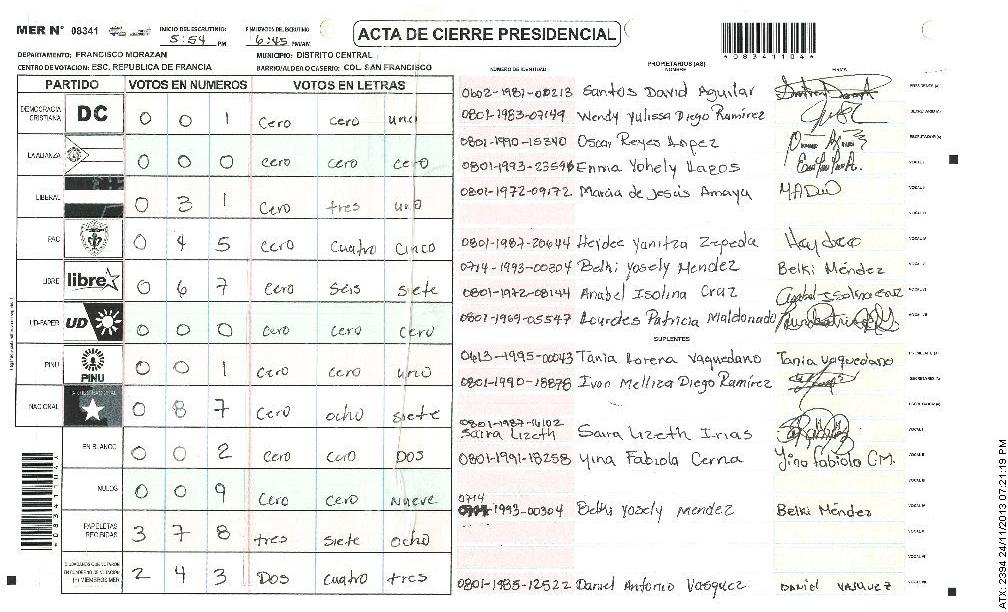 MER N° 08341
INICIO DEL ESCRUTINIO: 5:54 PM
FINALIZACION DEL ESCRUTINIO 6:45 PM/AM
ACTA DE CIERRE PRESIDENCIAL
*08341104*
DEPARTAMENTO: FRANCISCO MORAZAN
MUNICIPIO: DISTRITO CENTRAL
CENTRO DE VOTACION: ESC. REPUBLICA DE FRANCIA
BARRIO/ALDEA O CASERIO: COL. SAN FRANCISCO
PARTIDO VOTOS EN NUMEROS VOTOS EN LETRAS
DEMOCRACIA CRISTIANA DC 0 0 1 cero cero uno
LA ALIANZA 0 0 0 cero cero cero
LIBERAL 0 3 1 cero tres uno
PAC 0 4 5 cero cuatro cinco
LIBRE libre 0 6 7 cero seis siete
UD-FAPER UD 0 0 0 cero cero cero
PINU PINU 0 0 1 cero cero uno
NACIONAL 0 8 7 cero ocho siete
EN BLANCO 0 0 2 cero cero DOS
NULOS 0 0 9 cero cero nueve
PAPELETAS RECIBIDAS 3 7 8 tres siete ocho
CIUDADANOS QUE VOTARON EN CUADERNO DE VOTACION (+) MIEMBROS MER 2 4 3 DOS cuatro tres
NUMERO DE IDENTIDAD PROPIETARIOS (AS) NOMBRE FIRMA
0602-1981-00213 Santos David Aguilar PRESIDENTE (A)
0801-1983-07149 Wendy Yulissa Diego Ramírez SECRETARIO (A)
0801-1990-15340 Oscar Reyes Lopez ESCRUTADOR (A)
0801-1993-23596 Emma Yohely Lagos VOCAL I
0801-1972-09172 Marcia de Jesús Amaya VOCAL II
VOCAL III
0801-1987-20644 Heydee Yanitza Zepeda VOCAL IV
0714-1993-00304 Belki Yosely Mendez Belki Méndez VOCAL V
0801-1972-08144 Anabel Isolina Cruz Anabel Isolina Cruz VOCAL VI
0801-1969-05547 Lourdes Patricia Maldonado VOCAL VII
SUPLENTES
0613-1995-00043 Tania Lorena Vaquedano Tania Vaquedano PRESIDENTE (A)
0801-1990-18878 Ivon Melliza Diego Ramírez SECRETARIO (A)
ESCRUTADOR (A)
0801-1987-16102
Saira Lizeth Saira Lizeth Irias VOCAL I
0801-1991-18258 Yina Fabiola Cerna Yina Fabiola C.M. VOCAL II
0714
-1993-00304 Belki Yosely Mendez Belki Méndez VOCAL IV
0801-1985-12522 Daniel Antonio Vasquez DANIEL VASQUEZ VOCAL VII
*08341104*
ATX: 2394 24/11/2013 07:21:19 PM